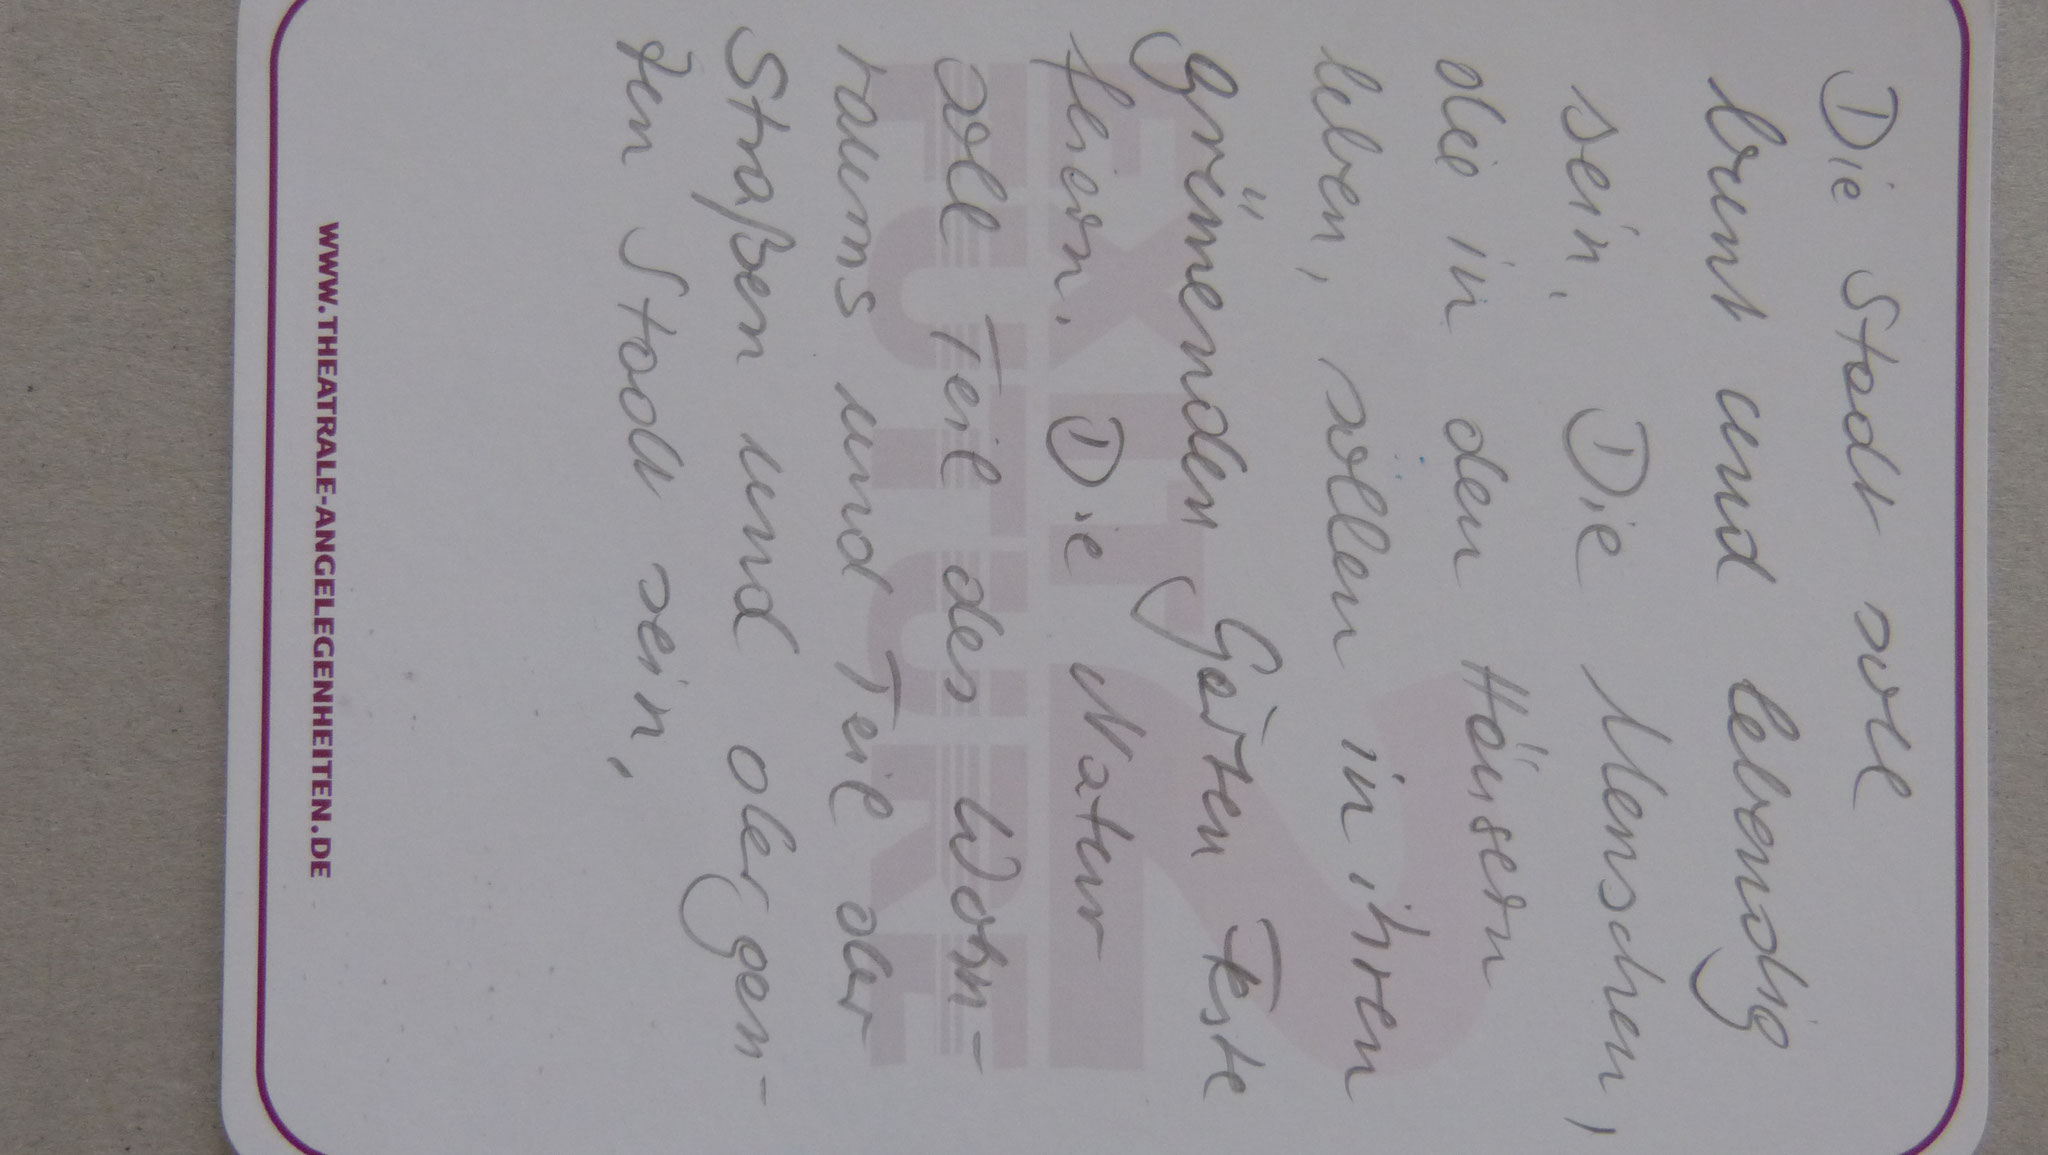 Die Stadt soll
bunt und lebendig
sein. Die Menschen,
die in den Häusern
leben, sollen in ihren
grünenden Gärten Feste
feiern. Die Natur
soll Teil des Wohn-
raums und Teil der
Straßen und der gan-
zen Stadt sein.
EXIT 2
FUTURE
WWW.THEATRALE-ANGELEGENHEITEN.DE